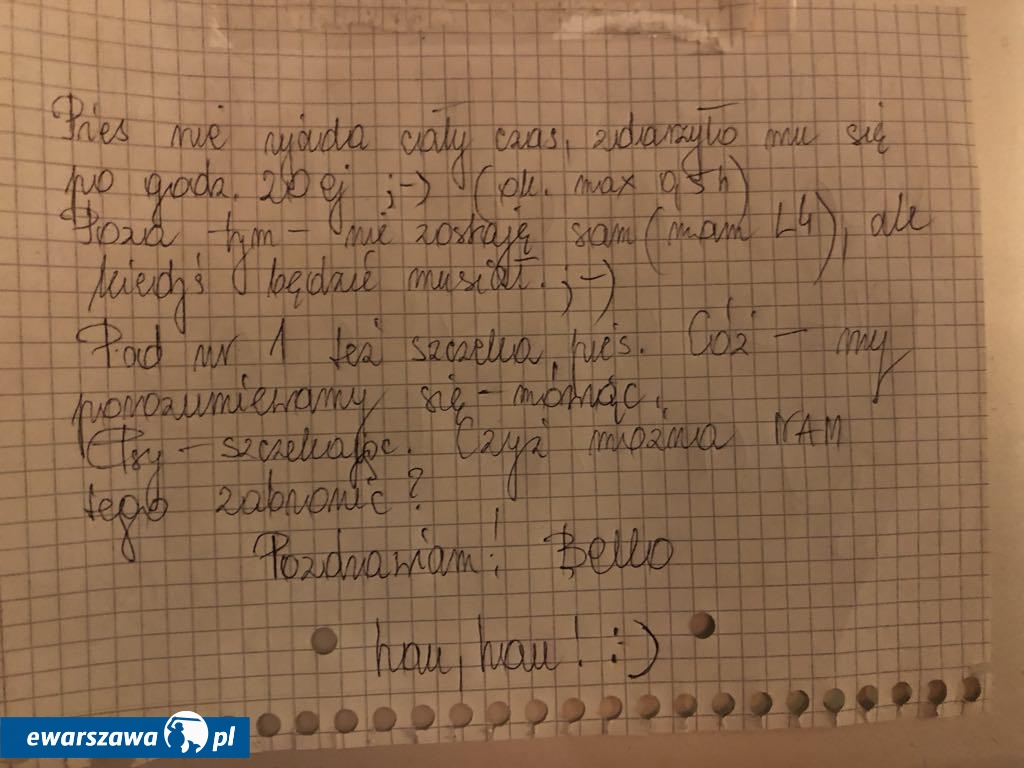 Pies nie ujada cały czas, zdarzyło mu się
po godz. 20ej ;-) (ok. max 0,5h)
Poza tym - nie zostaję sam (mam L4), ale
kiedyś będzie musiał. ;-)
Pod nr 1 też szczeka pies. Cóż - my
porozumiewamy się - mówiąc,
Psy - szczekając. Czyż można NAM
tego zabronić?
Pozdrawiam! Bello
hau, hau! :-)
ewarszawa.pl